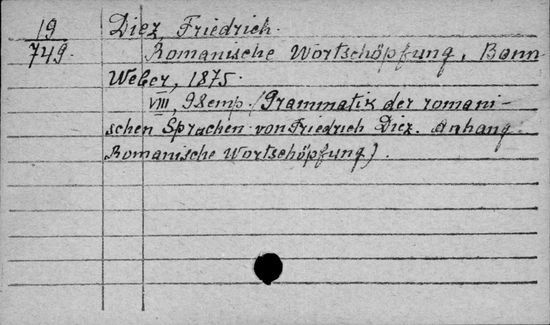 19
749.
Diez, Friedrich.
Romanische Wortschöpfung, Bonn
Weber, 1875.
VIII, 98 emp. (Grammatik der romani-
schen Sprachen von Friedrich Diez. Anhang.
Romanische Wortschöpfung).